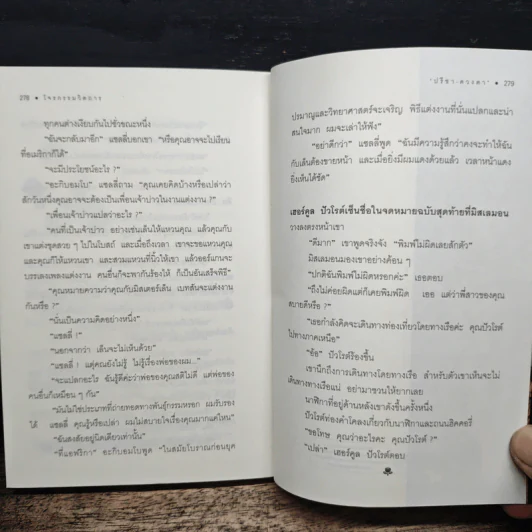 278 • โจรกรรมริษยาร
ทุกคนต่างเงียบกันไปชั่วขณะหนึ่ง
"ฉันจะกลับมาอีก" แชลลี่บอกเขา "หรือคุณอาจจะไปเรียน
ที่อเมริกาก็ได้"
"จะมีประโยชน์อะไร ?"
"อะกิบอมโบ" แชลลี่ถาม "คุณเคยคิดบ้างหรือเปล่าว่า
สักวันหนึ่งคุณอาจจะต้องไปเป็นเพื่อนเจ้าบ่าวในงานแต่งงาน ?"
"เพื่อนเจ้าบ่าวแปลว่าอะไร ?"
"คนที่เป็นเจ้าบ่าว อย่างเช่นเล้นให้แหวนคุณ แล้วคุณกับ
เขาแต่งชุดสวย ๆ ไปในโบสถ์ และเมื่อถึงเวลา เขาจะขอแหวนคุณ
และคุณก็ให้แหวนเขา และสวมแหวนที่นิ้วให้เขา แล้วออร์แกนจะ
บรรเลงเพลงแต่งงาน คนอื่นก็จะพากันร้องไห้ ก็เป็นอันเสร็จพิธี"
"คุณหมายความว่าคุณกับมิสเตอร์เล้น เบทสันจะแต่งงาน
กันหรือ ?"
"นั่นเป็นความคิดอย่างหนึ่ง"
"แชลลี่ !"
"นอกจากว่า เล้นจะไม่เห็นด้วย"
"แชลลี่ ! แต่คุณยังไม่รู้ ไม่รู้เรื่องพ่อของผม..."
"จะแปลกอะไร ฉันรู้ดีค่ะว่าพ่อของคุณสติไม่ดี แต่พ่อของ
คนอื่นก็เหมือน ๆ กัน"
"มันไม่ใช่ประเภทที่ถ่ายทอดทางพันธุ์กรรมหรอก ผมรับรอง
ได้ แชลลี่ คุณรู้หรือเปล่า ผมไม่สบายใจเรื่องคุณมากแค่ไหน"
"ฉันสงสัยอยู่นิดเดียวเท่านั้น"
"ที่แอฟริกา" อะกิบอมโบพูด "ในสมัยโบราณก่อนยุค
"ปรีชา-ดวงตา" • 279
ปรมาณูและวิทยาศาสตร์จะเจริญ พิธีแต่งงานที่นั่นแปลกและน่า
สนใจมาก ผมจะเล่าให้ฟัง"
"อย่าดีกว่า" แชลลี่พูด "ฉันมีความรู้สึกว่าคงจะทำให้ฉัน
กับเล้นต้องขายหน้า และเมื่อยิ่งมีผมแดงด้วยแล้ว เวลาหน้าแดง
ยิ่งเห็นได้ชัด"
เฮอร์คูล ปัวโรต์เซ็นชื่อในจดหมายฉบับสุดท้ายที่มิสเลมอน
วางลงตรงหน้าเขา
"ดีมาก" เขาพูดจริงจัง "พิมพ์ไม่ผิดเลยสักตัว"
มิสเลมอนมองเขาอย่างค้อน ๆ
"ปกติฉันพิมพ์ไม่ผิดหรอกค่ะ" เธอตอบ
"ถึงไม่ค่อยผิดแต่ก็เคยพิมพ์ผิด เธอ แต่ว่าพี่สาวของคุณ
สบายดีหรือ ?"
"เธอกำลังคิดจะเดินทางท่องเที่ยวโดยทางเรือค่ะ คุณปัวโรต์
ไปทางภาคเหนือ"
"อ้อ" ปัวโรต์ร้องขึ้น
เขานึกถึงการเดินทางโดยทางเรือ สำหรับตัวเขาเห็นจะไม่
เดินทางทางเรือแน่ อย่ามาชวนให้ยากเลย
นาฬิกาที่อยู่ด้านหลังเขาดังขึ้นครั้งหนึ่ง
ปัวโรต์ท่องคำโคลงเกี่ยวกับนาฬิกาและถนนฮิคคอรี่
"ขอโทษ คุณว่าอะไรคะ คุณปัวโรต์ ?"
"เปล่า" เฮอร์คูล ปัวโรต์ตอบ